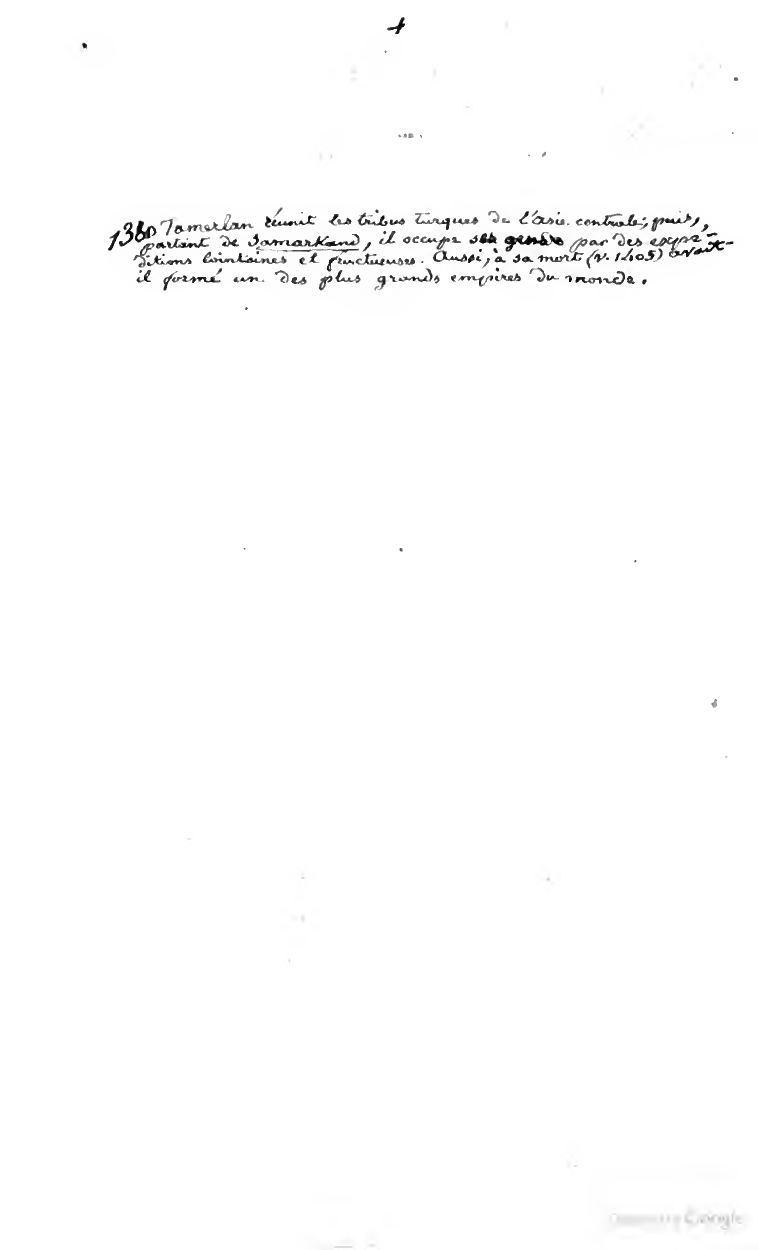 4
1380 Tamerlan réunit les tribus turques de l'asie centrale; puis,
partant de Samarkand, il occupe ses gendre par des expé-
ditions lointaines et fructueuses. Aussi, à sa mort (v. 1405) avait-
il formé un des plus grands empires du monde.
Google